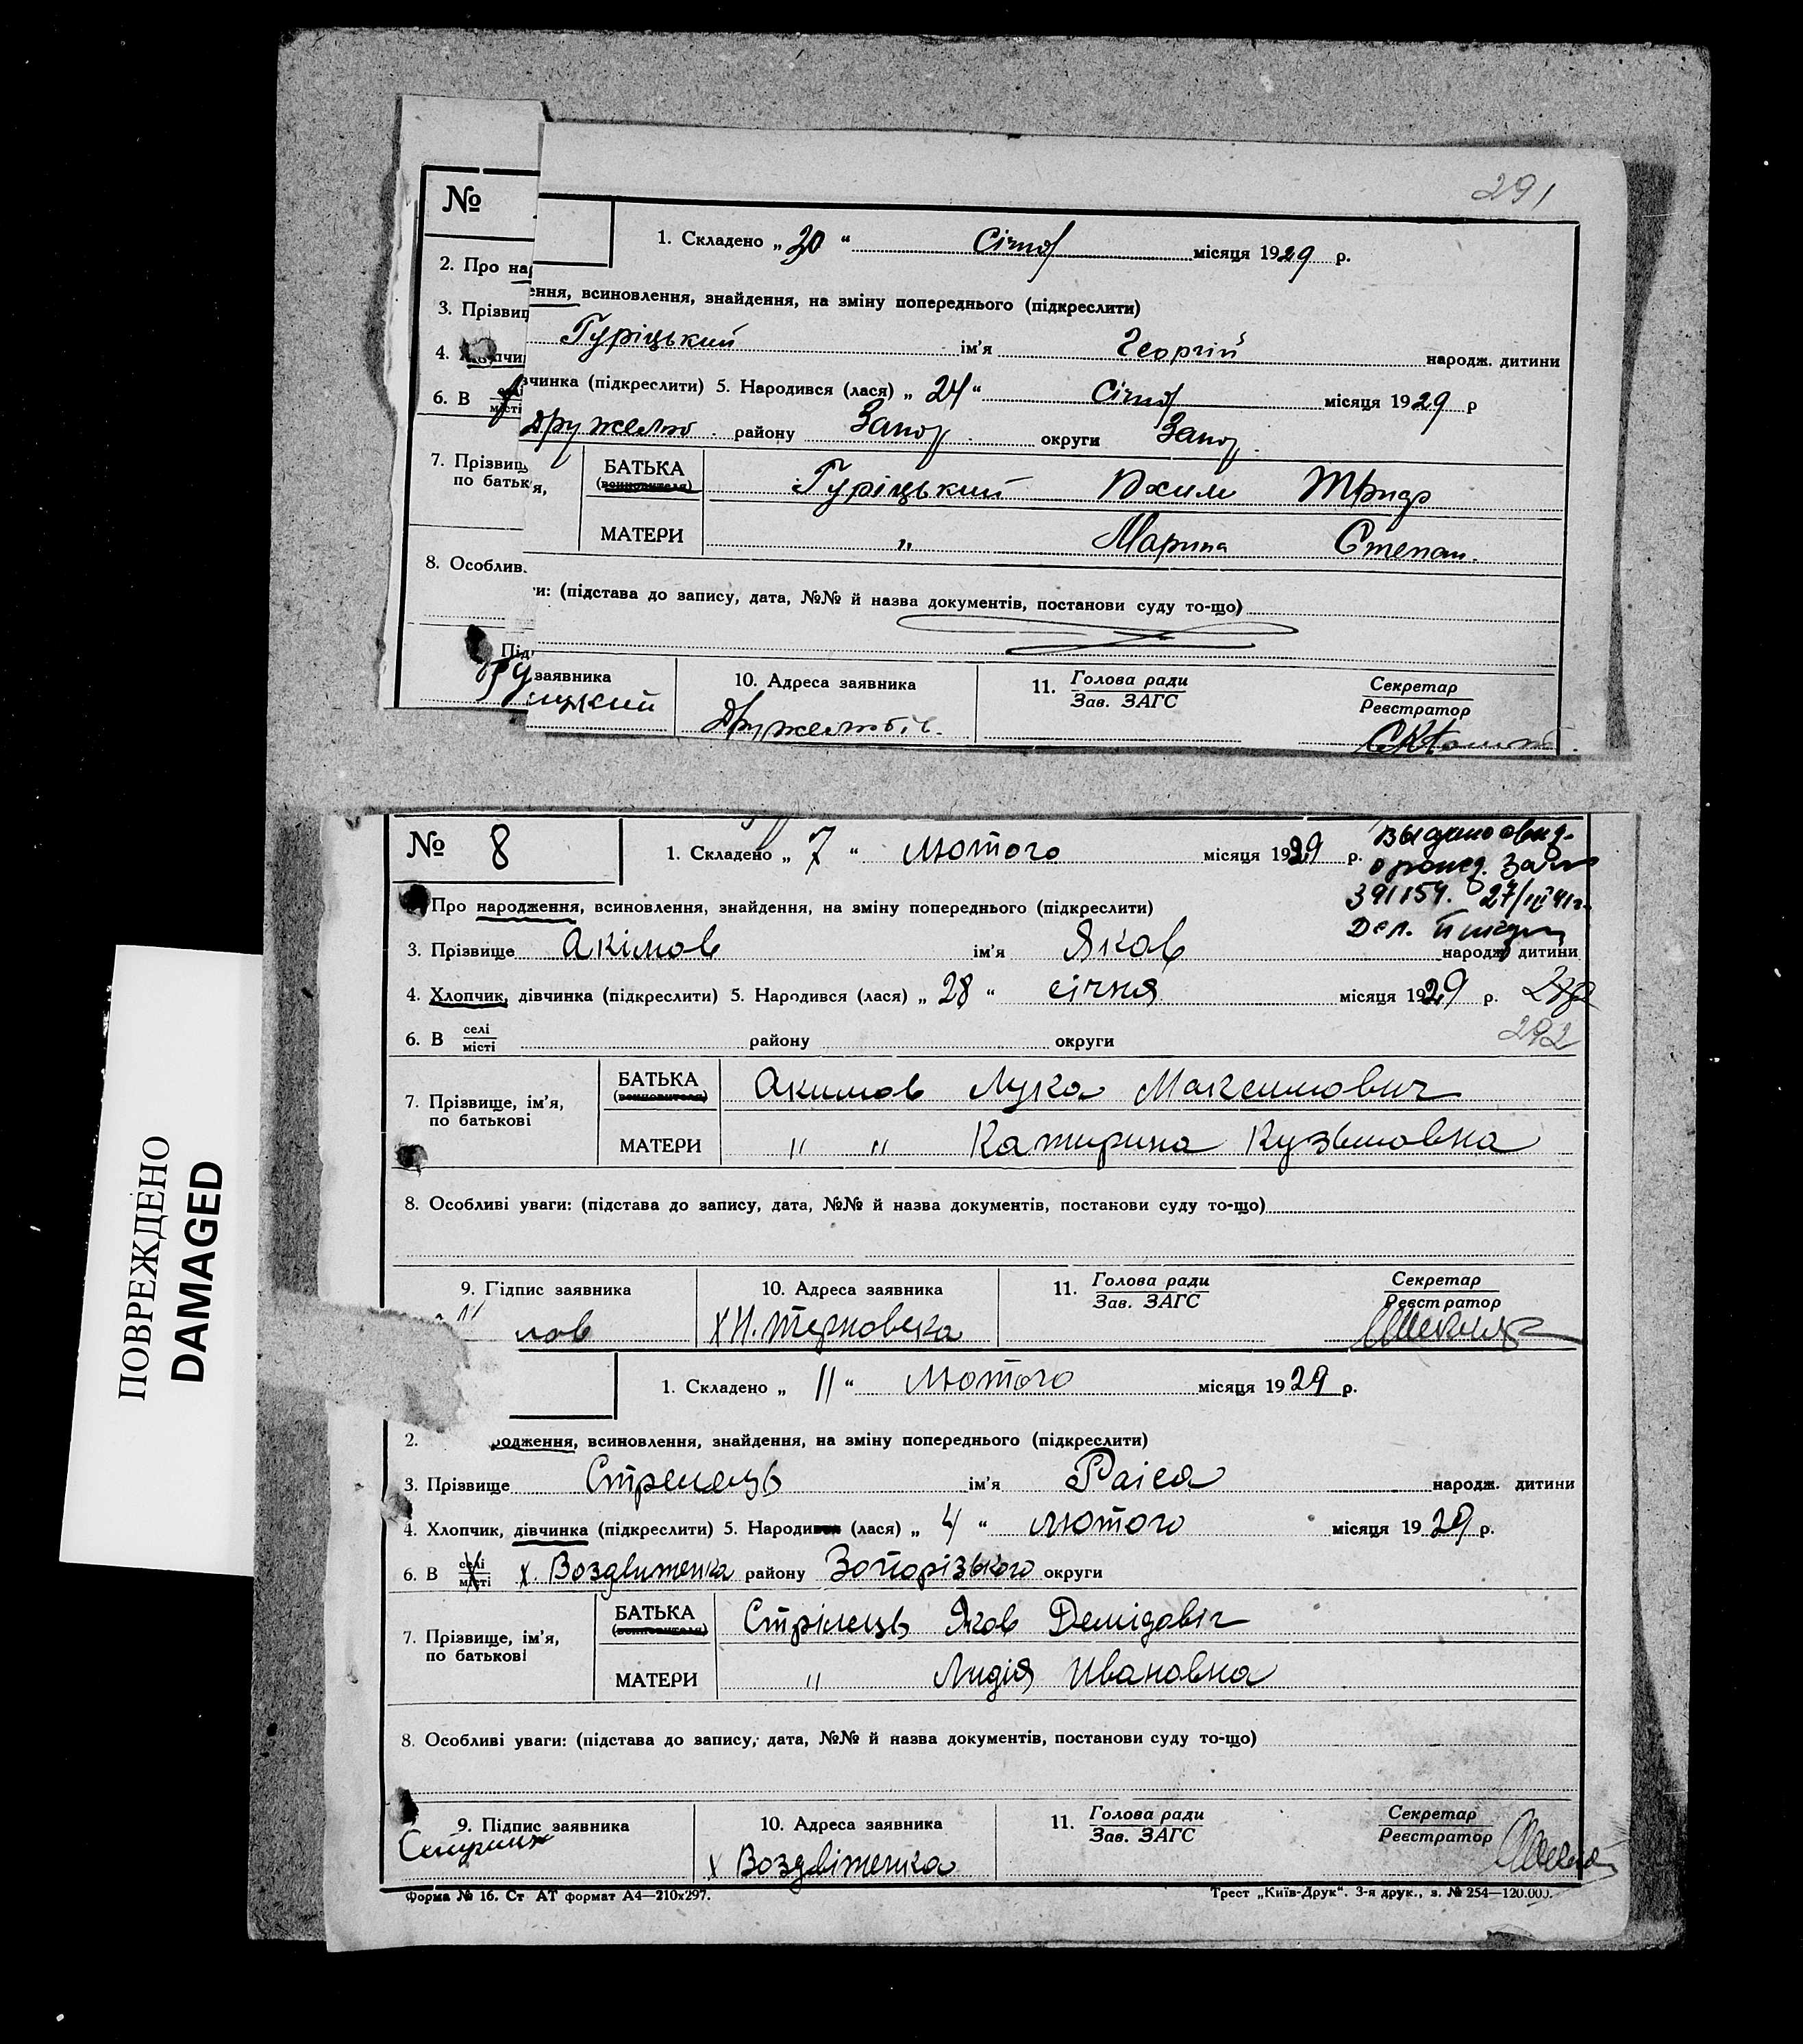 291
№
1. Складено „ 30 “ Січня місяця 1929 р.
2. Про на ення, всиновлення, знайдення, на зміну попереднього (підкреслити)
3. Прізвищ Гуріцький ім'я Георгій народж. дитини
4. вчинка (підкреслити) 5. Народився (лася) „ 24 “ Січня місяця 1929 р
6. В районy Запор округи Запор.
7. Прізвищ БАТЬКА Гуріцький
по батьк я, (всиновителя)
МАТЕРИ „ Марина Степан.
8. Особлив.
и: (підстава до запису, дата, №№ й назва документів, постанови суду то-що)
Під заявника 10. Адреса заявника 11. Голова ради Секретар
Зав. ЗАГС Реєстратор
№ 8 1. Складено „ 7 “ Лютого місяця 1929 р.
391154. 27/III 41 г.
Про народження, всиновлення, знайдення, на зміну попереднього (підкреслити)
3. Прізвище Акімов ім'я Яков народж. дитини
4. Хлопчик, дівчинка (підкреслити) 5. Народився (лася) „ 28 “ січня місяця 1929 р.
292
6. В селі району округи
місті
БАТЬКА Акимов Лука Максимович
(всиновителя)
7. Прізвище, ім'я,
по батькові
МАТЕРИ " " Катирина Кузьмовна
8. Особливі уваги: (підстава до запису, дата, №№ й назва документів, постанови суду то-що)
9. Підпис заявника 10. Адреса заявника 11. Голова ради Секретар
Зав. ЗАГС Реєстратор
мов х Н. Терновка
1. Складено „ 11 “ Лютого місяця 1929 р.
2. родження, всиновлення, знайдення, на зміну попереднього (підкреслити)
3. Прізвище Стрелець ім'я Раіса народж. дитини
4. Хлопчик, дівчинка (підкреслити) 5. Народився (лася) „ 4 “ лютого місяця 1929 р.
6. В селі х. Воздвиженка району Запорізького округи
місті
БАТЬКА Стрілець Яков Демідовіч
(всиновителя)
7. Прізвище, ім'я,
по батькові
МАТЕРИ " Лидія Ивановна
8. Особливі уваги: (підстава до запису, дата, №№ й назва документів, постанови суду то-що)
9. Підпис заявника 10. Адреса заявника 11. Голова ради Секретар
Зав. ЗАГС Реєстратор
х Воздвіженка
Форма № 16. Ст АТ формат А4—210х297. Трест „Київ-Друк“. 3-я друк., з. № 254—120.000.
ПОВРЕЖДЕНО
DAMAGED